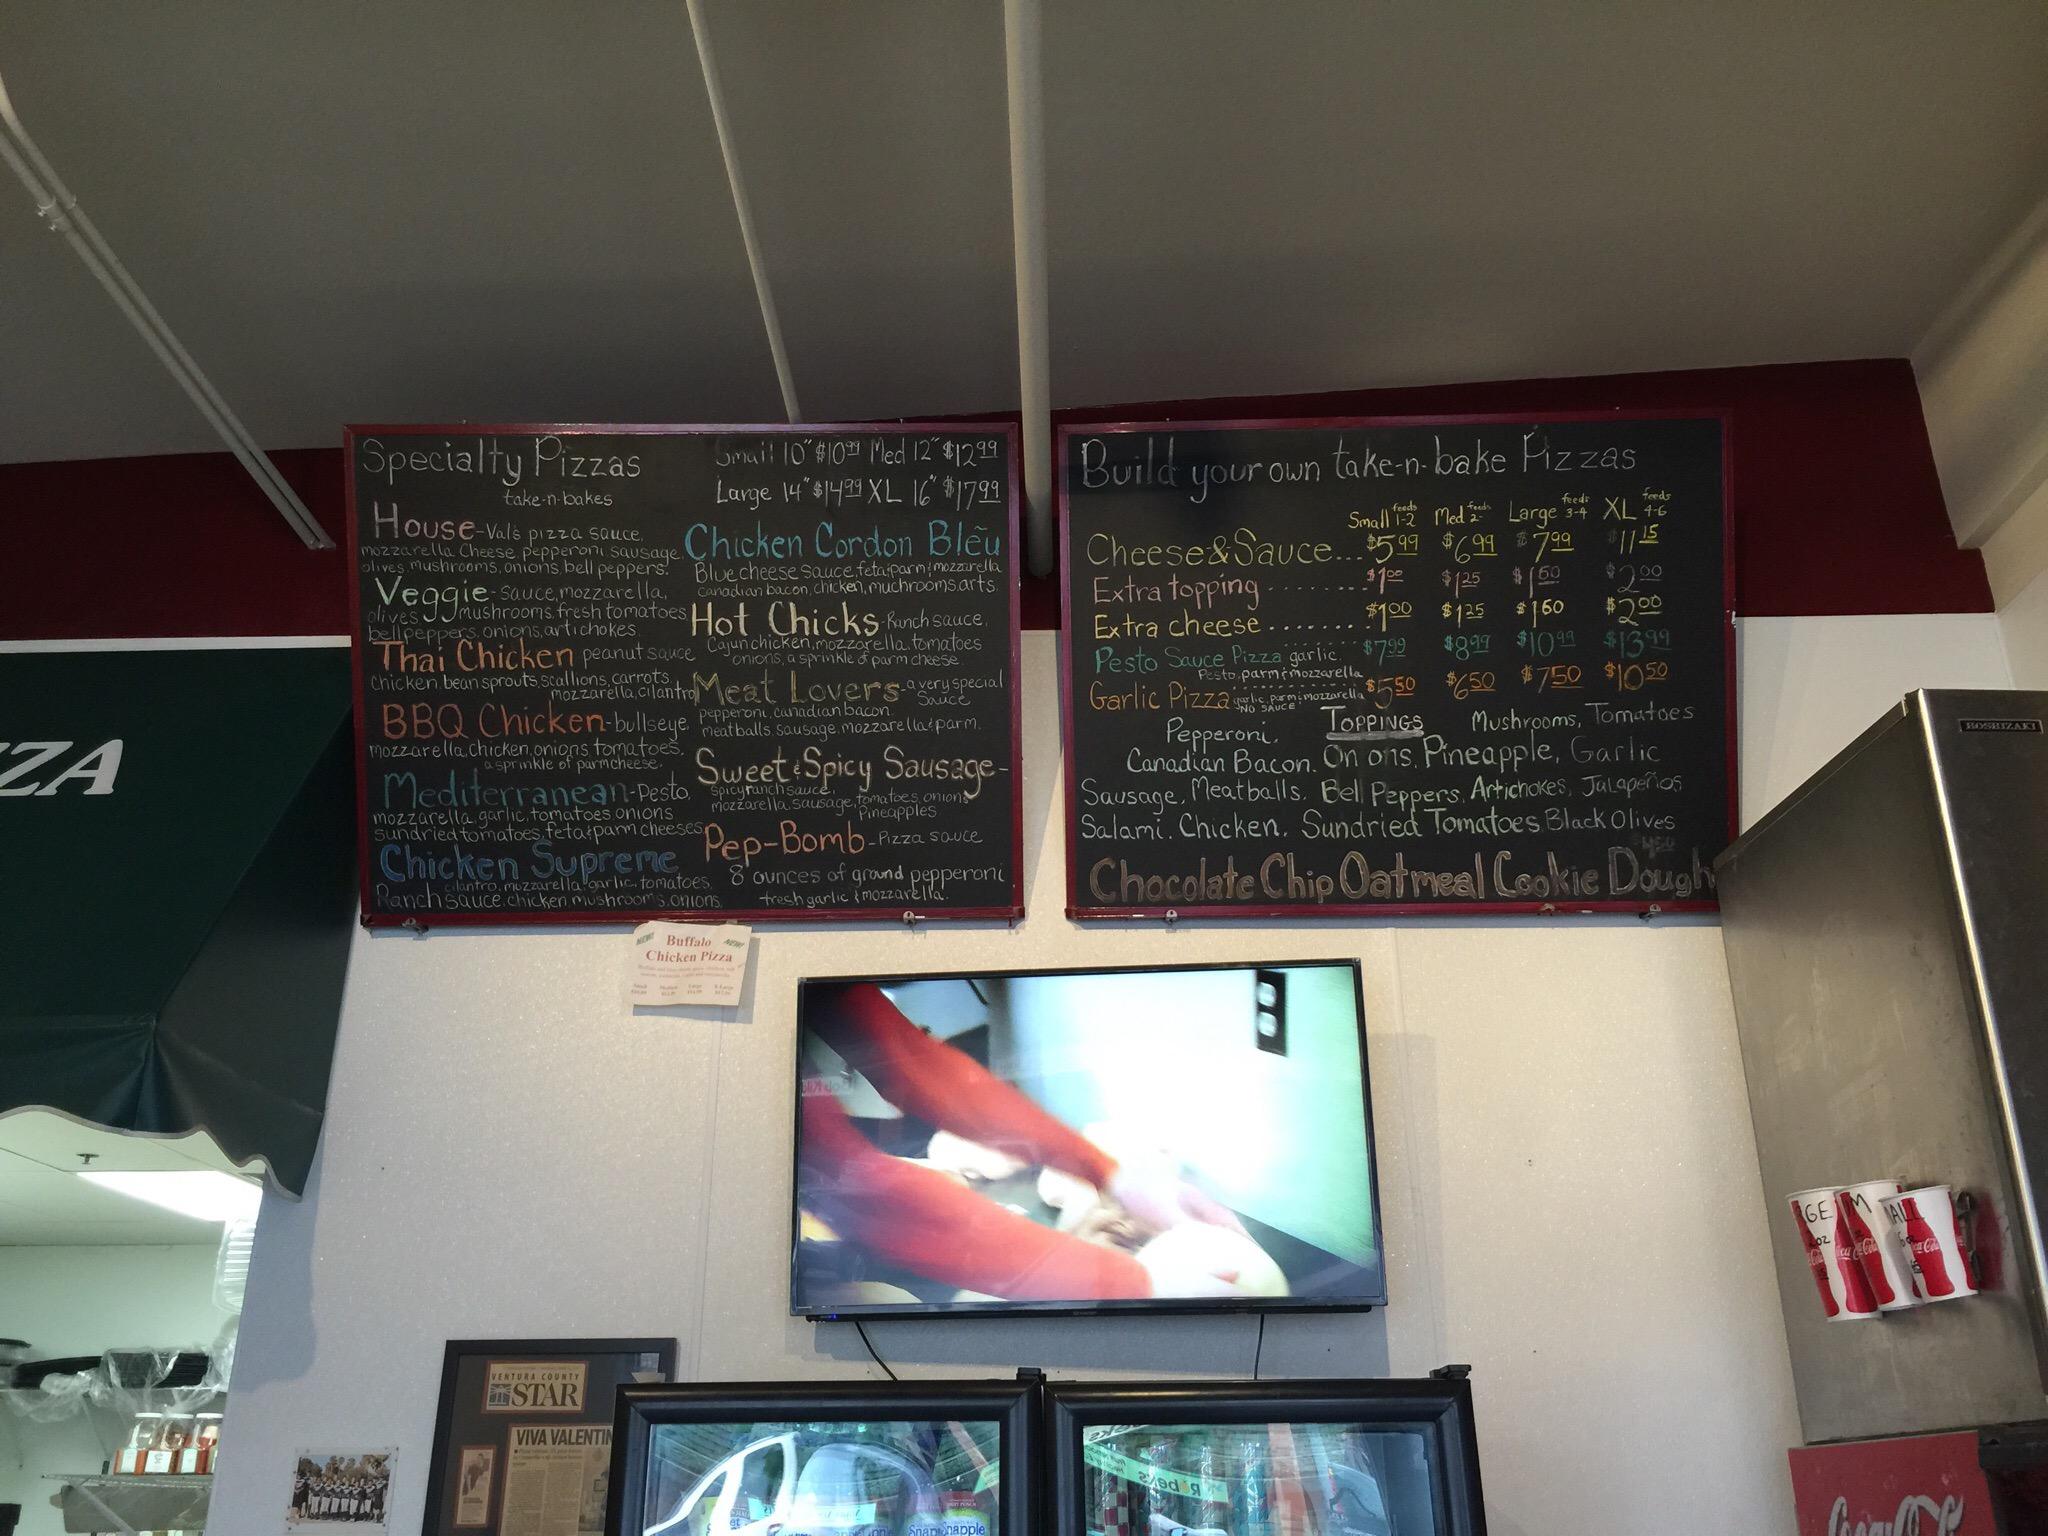 ZZA
Specialty Pizzas
take-n-bakes
Small 10" $10.99 Med 12" $12.99
Large 14" $14.99 XL 16" $17.99
House-Val's pizza sauce,
mozzarella cheese, pepperoni, sausage,
olives, mushrooms, onions, bell peppers.
Veggie-sauce, mozzarella,
olives mushrooms, fresh tomatoes,
bell peppers, onions, artichokes.
Thai Chicken peanut sauce
chicken, bean sprouts, scallions, carrots,
mozzarella, cilantro
BBQ Chicken-bullseye,
mozzarella, chicken, onions, tomatoes,
a sprinkle of parm cheese.
Mediterranean-Pesto,
mozzarella, garlic, tomatoes, onions
sundried tomatoes, feta & parm cheeses
Chicken Supreme
cilantro, mozzarella, garlic, tomatoes,
Ranch sauce, chicken mushrooms, onions.
Chicken Cordon Bleu
Blue cheese sauce, feta, parm & mozzarella
canadian bacon, chicken, muchrooms, arts.
Hot Chicks-Ranch sauce,
Cajun chicken, mozzarella, tomatoes
onions, a sprinkle of parm cheese.
Meat Lovers-a very special
sauce
pepperoni, canadian bacon,
meatballs, sausage, mozzarella & parm.
Sweet & Spicy Sausage-
spicy ranch sauce,
mozzarella, sausage, tomatoes, onions
pineapples
Pep-Bomb-Pizza sauce
8 ounces of ground pepperoni
fresh garlic & mozzarella.
Build your own take-n-bake Pizzas
Small feeds 1-2 Med feeds 2- Large feeds 3-4 XL feeds 4-6
Cheese & Sauce... $5.99 $6.99 $7.99 $11.15
Extra topping ........ $1.00 $1.25 $1.50 $2.00
Extra cheese ....... $1.00 $1.25 $1.50 $2.00
Pesto Sauce Pizza garlic, $7.99 $8.99 $10.99 $13.99
Pesto, parm & mozzarella
Garlic Pizza garlic, parm & mozzarella $5.50 $6.50 $7.50 $10.50
NO SAUCE
Pepperoni, TOPPINGS Mushrooms, Tomatoes
Canadian Bacon, Onions, Pineapple, Garlic
Sausage, Meatballs, Bell Peppers, Artichokes, Jalapeños
Salami, Chicken, Sundried Tomatoes, Black Olives
Chocolate Chip Oatmeal Cookie Dough
NEW! Buffalo NEW!
Chicken Pizza
HOSHIZAKI
VENTURA COUNTY
STAR
VIVA VALENTIN
Coca-Cola
Snapple